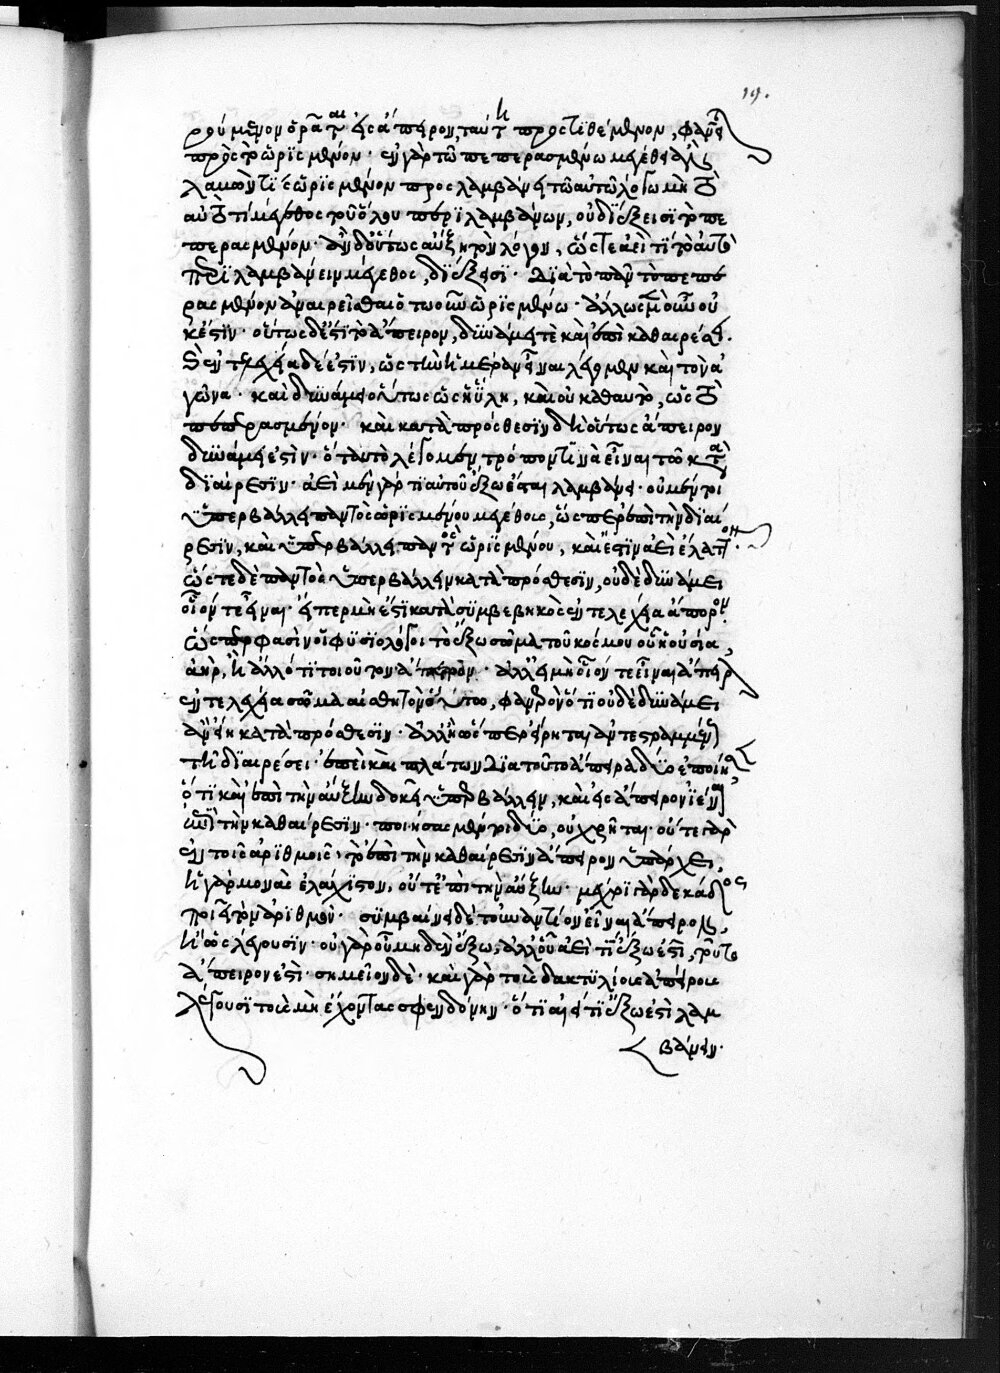 19.
ρούμενον ὁρᾶται ἐς ἄπειρον, ταύτη προστιθέμενον, φανεῖ
πρὸς τὸ ὡρισμένον· ἐν γὰρ τῶ πεπερασμένω μεγέθει ἂν
λαβών τις ὡρισμένον προσλαμβάνη τῶ αὐτῶ λόγω μὴ τὸ
αὐτό τι μέγεθος τοῦ ὅλου περιλαμβάνων, οὐ διέξεισι τὸ πε
περασμένον· ἂν δ' οὕτως αὔξη τὸν λόγον, ὥστε ἀεί τι τὸ αὐτὸ
περιλαμβάνειν μέγεθος, διέξεισι· διὰ τὸ πᾶν τὸ πεπε
ρασμένον ἀναιρεῖσθαι ὁτωοῦν ὡρισμένω· ἄλλως μὲν οὖν οὐ
κἔστιν· οὕτως δ' ἔστι τὸ ἄπειρον, δυνάμει τὲ καὶ ἐπὶ καθαιρέσει·
ἐντελεχεία δέ ἐστιν, ὡς τὴν ἡμέραν εἶναι λέγομεν καὶ τὸν ἀ
γῶνα· καὶ δυνάμει οὕτως ὡς ἡ ὕλη, καὶ οὐ καθαυτὸ, ὡς τὸ
πεπερασμένον· καὶ κατὰ πρόσθεσιν δὴ οὕτως ἄπειρον
δυνάμει ἐστὶν· ὃ ταὐτὸ λέγομεν, τρόπον τινὰ εἶναι τῶ κατὰ
διαίρεσιν· ἀεὶ μὲν γάρ τι αὐτοῦ ἔξω ἔσται λαμβάνειν· οὐ μέντοι
ὑπερβάλλει παντὸς ὡρισμένου μεγέθους, ὥσπερ ἐπὶ τὴν διαί
ρεσιν, καὶ ὑπερβάλλει παντὸς ὡρισμένου, καὶ ἔστιν ἀεὶ ἔλαττον·
ὥστε δὲ παντὸς ὑπερβάλλειν κατὰ πρόσθεσιν, οὐδὲ δυνάμει
οἷόν τε εἶναι· εἴπερ μὴ ἔστι κατὰ συμβεβηκὸς ἐντελεχεία ἄπειρον·
ὥσπερ φασὶν οἱ φυσιολόγοι τὸ ἔξω σῶμα τοῦ κόσμου οὗ ἡ οὐσία,
ἀὴρ, ἢ ἄλλό τι τοιοῦτον ἄπειρον· ἀλλ' εἰ μὴ οἷόν τε εἶναι ἄπειρον
ἐντελεχεία σῶμα αἰσθητὸν οὕτω, φανερὸν ὅτι οὐδὲ δυνάμει
ἂν εἴη κατὰ πρόσθεσιν· ἀλλ' ἢ ὥσπερ εἴρηται ἀντεστραμμένως
τῆ διαιρέσει· ἐπεὶ καὶ πλάτων διὰ τοῦτο ἄπειρα δύο ἐποίησεν,
ὅτι καὶ ἐπὶ τὴν αὔξην δοκεῖ ὑπερβάλλειν, καὶ ἐς ἄπειρον ἰέναι
ἐπὶ τὴν καθαίρεσιν· ποιήσας μέντοι δύο, οὐ χρῆται· οὔτε γὰρ
ἐν τοῖς ἀριθμοῖς, τὸ ἐπὶ τὴν καθαίρεσιν ἄπειρον ὑπάρχει,
ἡ γὰρ μονὰς ἐλάχιστον, οὔτ' ἐπὶ τὴν αὔξην· μέχρι γὰρ δεκάδος
ποιεῖ τὸν ἀριθμόν· συμβαίνει δὲ τοὐναντίον εἶναι ἄπειρον,
ἢ ὡς λέγουσιν· οὐ γὰρ οὗ μηδὲν ἔξω, ἀλλ' οὗ ἀεί τι ἔξω ἐστὶ, τοῦτο
ἄπειρον ἐστὶ· σημεῖον δὲ· καὶ γὰρ τοὺς δακτυλίους ἀπείρους
λέγουσι τοὺς μὴ ἔχοντας σφενδόνην· ὅτι αἰεί τι ἔξω ἐστὶ λαμ
βάνειν·